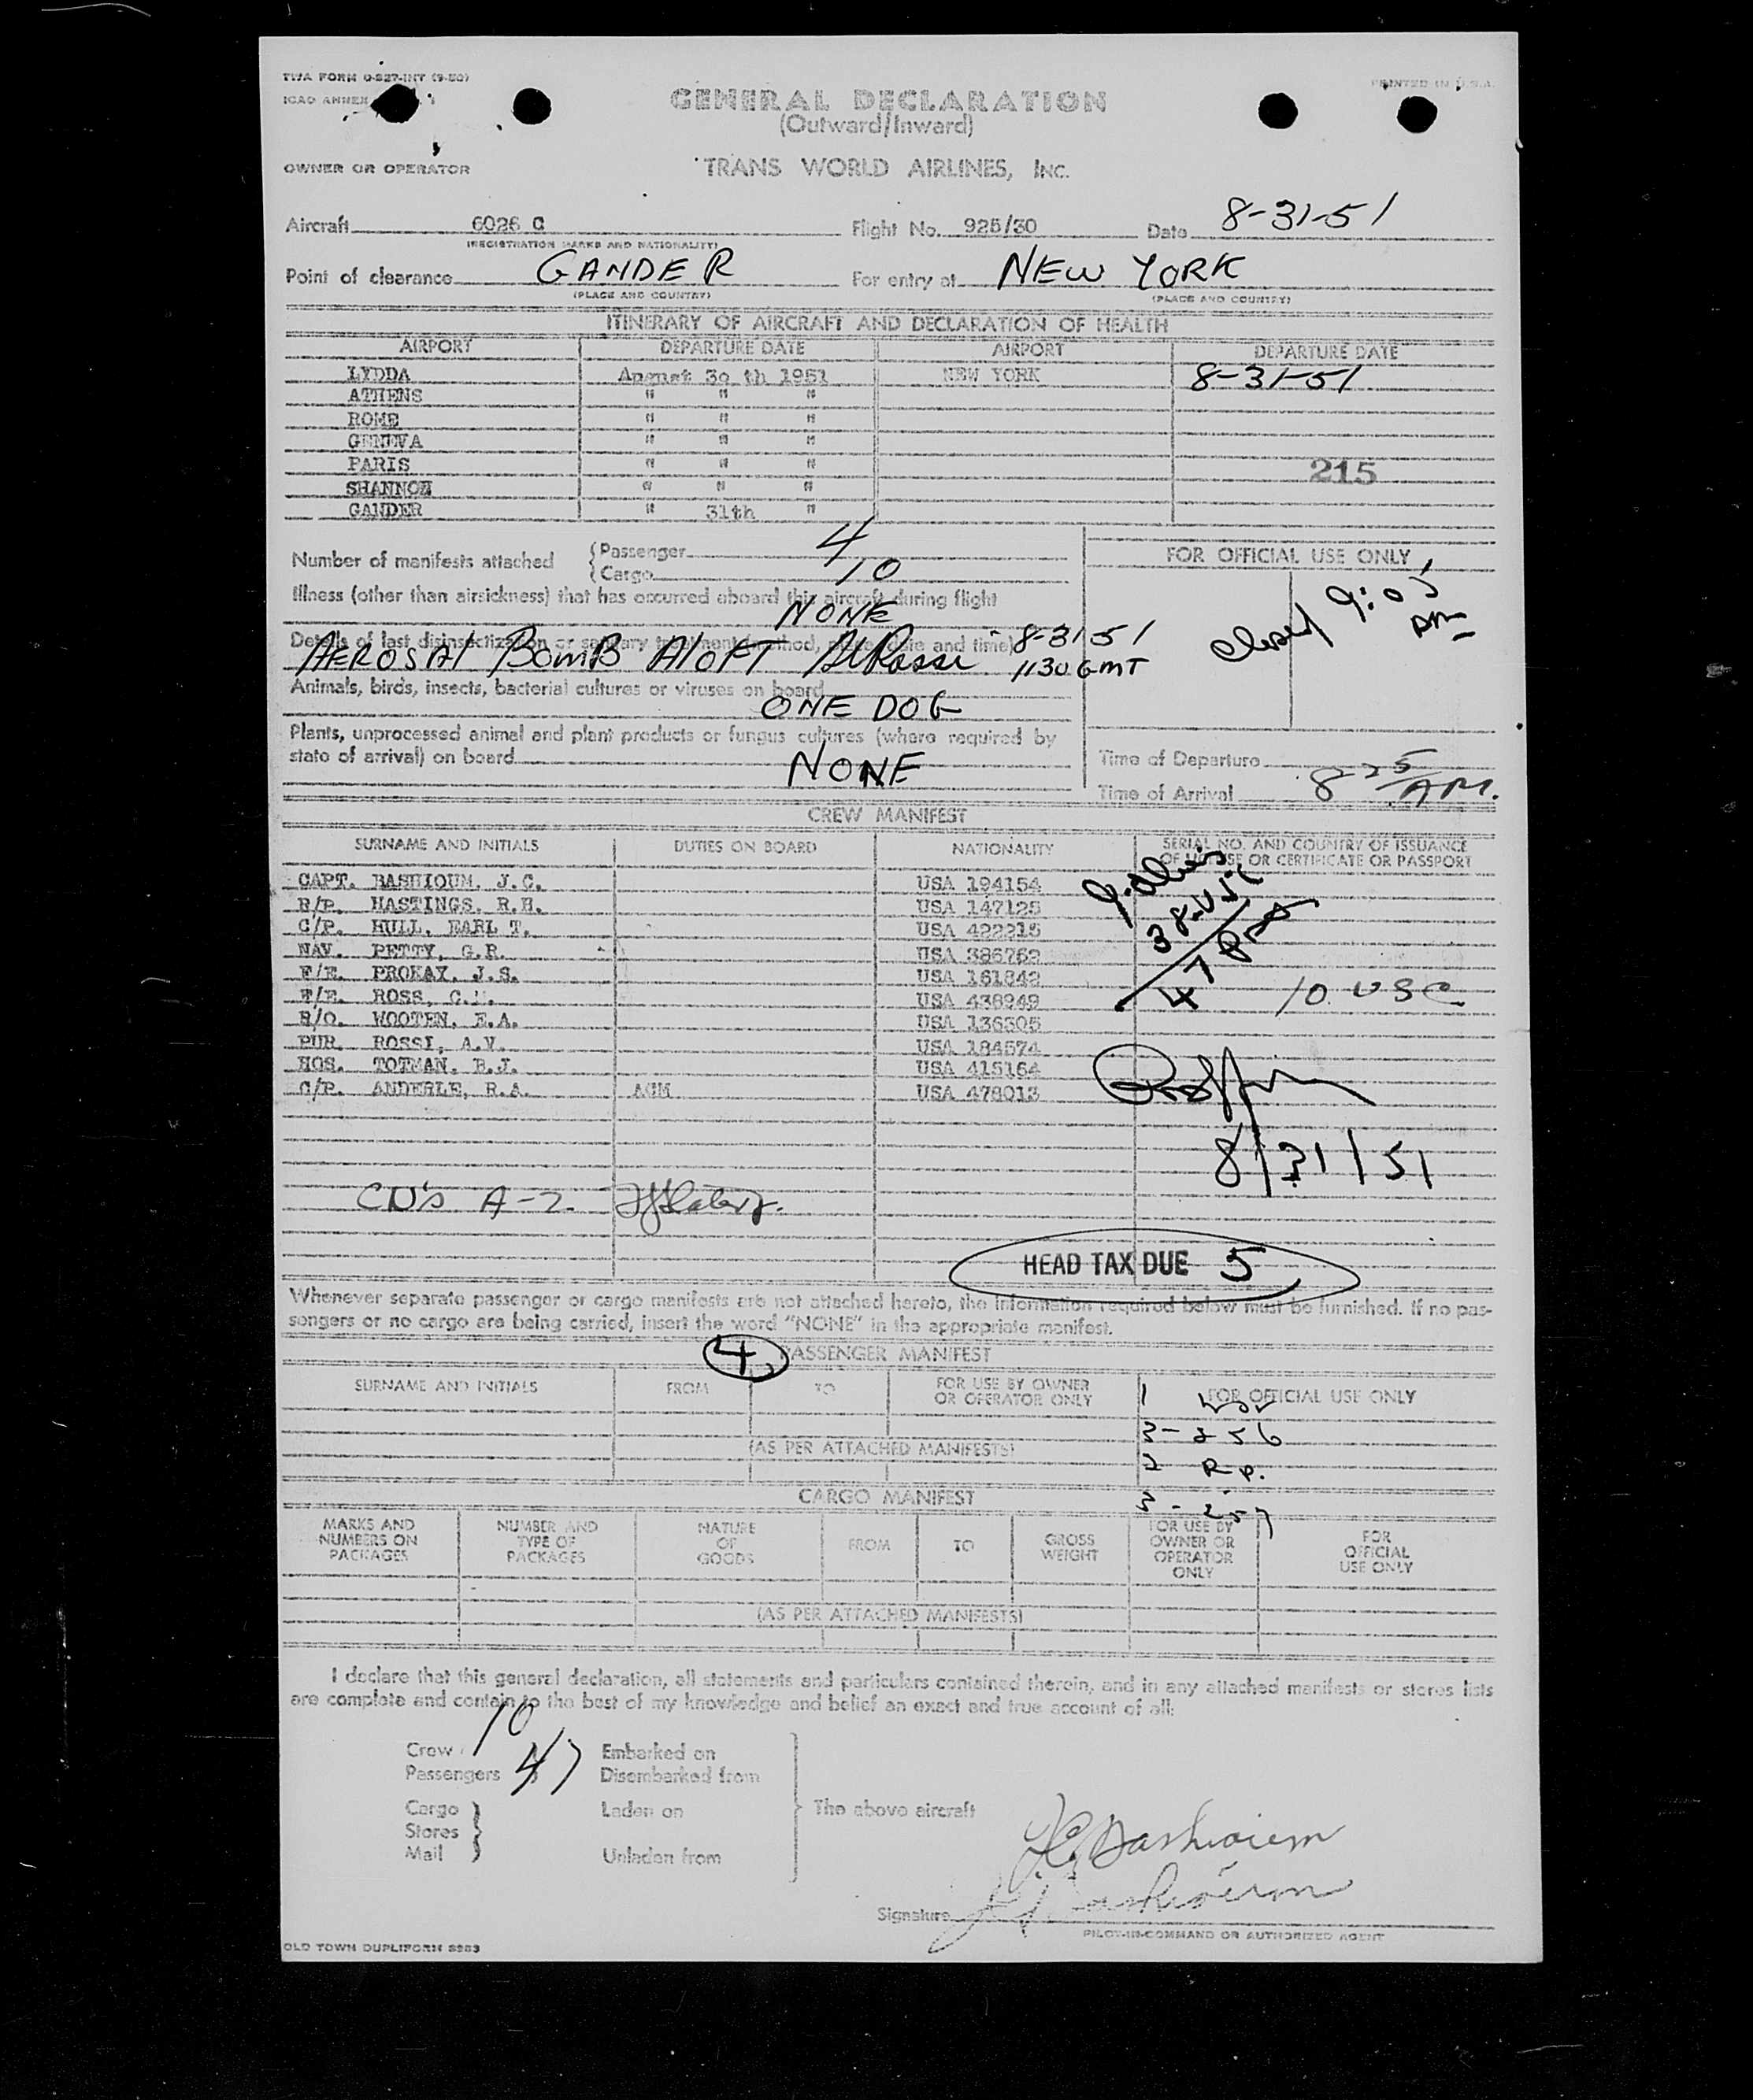 TWA FORM O-827-INT (9-50)
PRINTED IN U.S.A.
ICAO ANNEX
GENERAL DECLARATION
(Outward/Inward)
OWNER OR OPERATOR TRANS WORLD AIRLINES, INC.
Aircraft 6026 C Flight No. 925/30 Date 8-31-51
(REGISTRATION MARKS AND NATIONALITY)
Point of clearance GANDER For entry at NEW YORK
(PLACE AND COUNTRY) (PLACE AND COUNTRY)
ITINERARY OF AIRCRAFT AND DECLARATION OF HEALTH
AIRPORT DEPARTURE DATE AIRPORT DEPARTURE DATE
LYDDA August 30 th 1951 NEW YORK 8-31-51
ATHENS " " "
ROME " " "
GENEVA " " "
PARIS " " " 215
SHANNON " " "
GANDER " 31th "
Number of manifests attached Passenger 4
Cargo 10
FOR OFFICIAL USE ONLY
Illness (other than airsickness) that has occurred aboard this aircraft during flight
NONE
closed 9:05
Details of last disinsectization or sanitary treatment (method, place, date and time) 8-31-51
AEROSAL BOMB ALOFT ALRossi 1130 GMT
Animals, birds, insects, bacterial cultures or viruses on board
ONE DOG
Plants, unprocessed animal and plant products or fungus cultures (where required by
state of arrival) on board NONE
Time of Departure
Time of Arrival 8 25 AM.
CREW MANIFEST
SURNAME AND INITIALS DUTIES ON BOARD NATIONALITY SERIAL NO. AND COUNTRY OF ISSUANCE
OF LICENSE OR CERTIFICATE OR PASSPORT
CAPT. BASHIOUM, J.C. USA 194154
R/P. HASTINGS, R.H. USA 147125
C/P. HULL, EARL T. USA 422215
NAV. PETTY, G.R. USA 386762
F/E. PROKAY, J.S. USA 161842
F/E. ROSS, C. USA 438949
R/O. WOOTEN, E.A. USA 136305
PUR. ROSSI, A.V. USA 184574
HOS. TOTMAN, B.J. USA 415164
C/P. ANDERLE, R.A. ACM USA 478013
9. Aliens
38 USC
47 pas
10 USC
8/31/51
CD's A-2.
HEAD TAX DUE 5
Whenever separate passenger or cargo manifests are not attached hereto, the information required below must be furnished. If no pas-
sengers or no cargo are being carried, insert the word "NONE" in the appropriate manifest.
4 PASSENGER MANIFEST
SURNAME AND INITIALS FROM TO FOR USE BY OWNER
OR OPERATOR ONLY
FOR OFFICIAL USE ONLY
1
3-256
2 R.P.
3-257
(AS PER ATTACHED MANIFESTS)
CARGO MANIFEST
MARKS AND
NUMBERS ON
PACKAGES
NUMBER AND
TYPE OF
PACKAGES
NATURE
OF
GOODS
FROM
TO
GROSS
WEIGHT
FOR USE BY
OWNER OR
OPERATOR
ONLY
FOR
OFFICIAL
USE ONLY
(AS PER ATTACHED MANIFESTS)
I declare that this general declaration, all statements and particulars contained therein, and in any attached manifests or stores lists
are complete and contain to the best of my knowledge and belief an exact and true account of all:
Crew 10 Embarked on
Passengers 47 Disembarked from
Cargo Laden on The above aircraft
Stores
Mail Unladen from
J.C. Bashioum
Signature J.C. Bashioum
PILOT-IN-COMMAND OR AUTHORIZED AGENT
OLD TOWN DUPLIFORM 8983